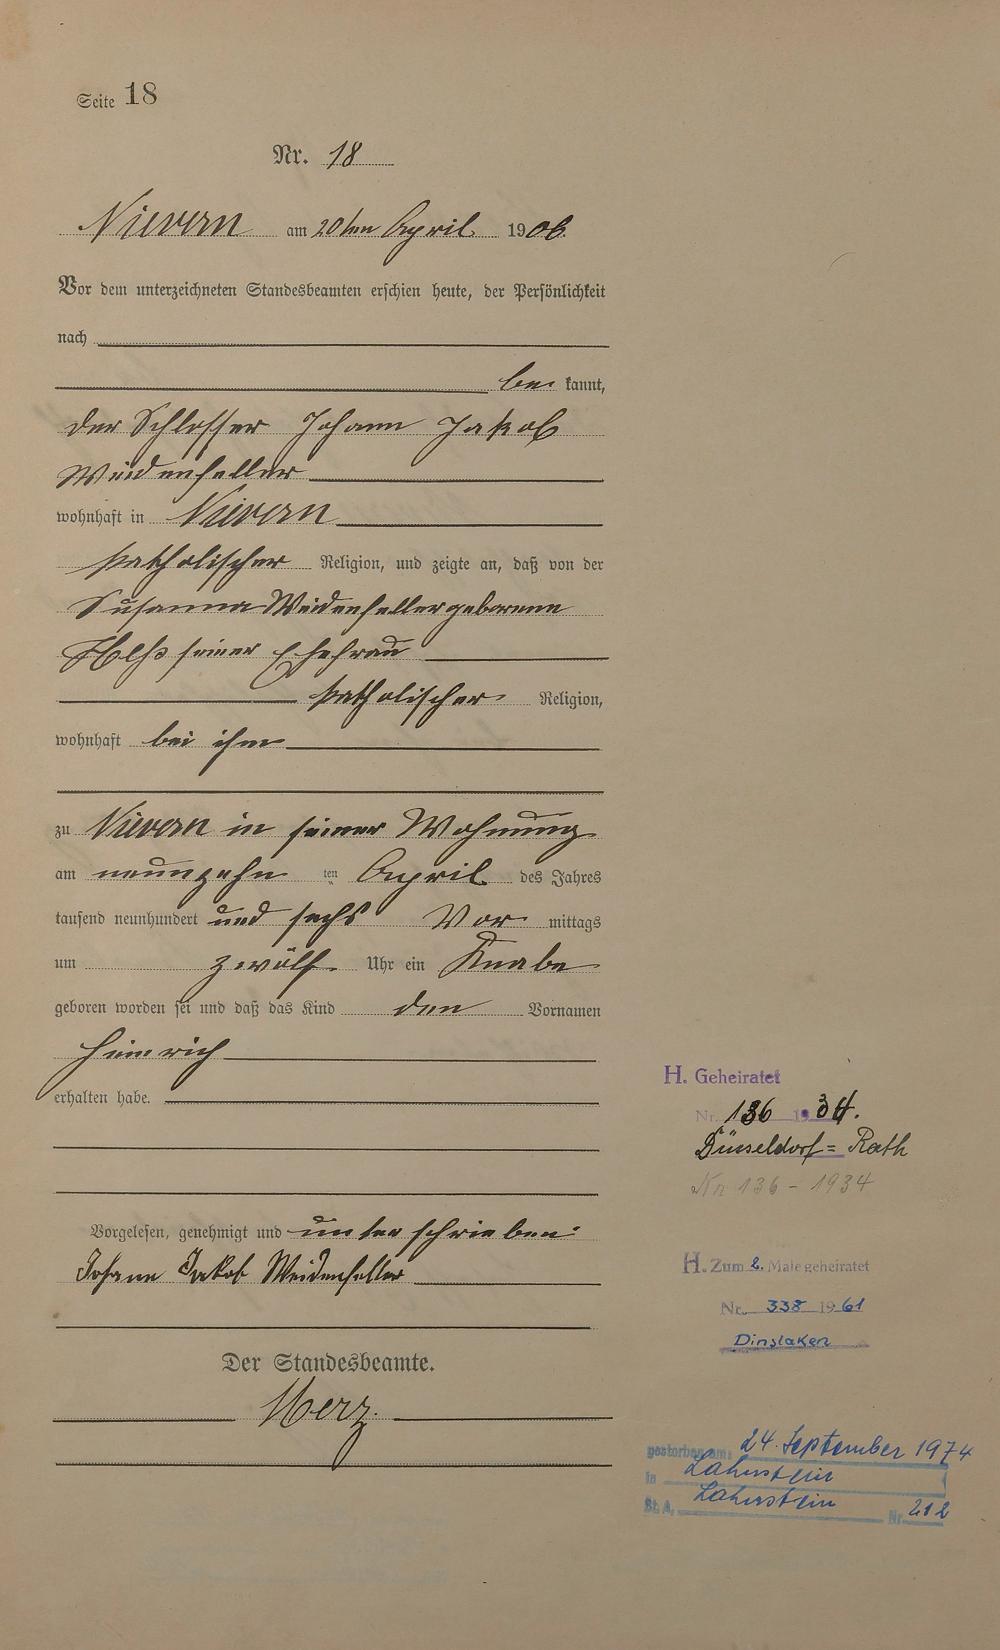 Seite 18
Nr. 18
Nievern am 20ten April 1906.
Vor dem unterzeichneten Standesbeamten erschien heute, der Persönlichkeit
nach
be kannt,
der Schlosser Johann Jakob
Weidenfeller
wohnhaft in Nievern
katholischer Religion, und zeigte an, daß von der
Susanna Weidenfeller geborene
seiner Ehefrau
katholischer Religion,
wohnhaft bei ihm
zu Nievern in seiner Wohnung
am neunzehn ten April des Jahres
tausend neunhundert und sechs Vor mittags
um zwölf Uhr ein Knabe
geboren worden sei und daß das Kind den Vornamen
Heinrich
erhalten habe.
Vorgelesen, genehmigt und unterschrieben:
Johann Jakob Weidenfeller
Der Standesbeamte.
Merz.
H. Geheiratet
Nr. 136 1934.
Düsseldorf=Rath
Nr 136 - 1934
H. Zum 2. Male geheiratet
Nr. 338 1961
Dinslaken
gestorben am: 24. September 1974
in Lahnstein
St. A. Lahnstein Nr. 212